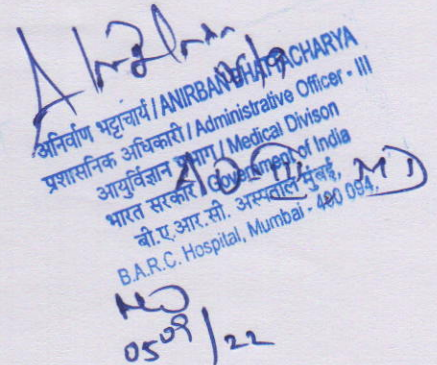 अनिर्वाण भट्टाचार्य / ANIRBAN BHATTACHARYA
प्रशासनिक अधिकारी / Administrative Officer - III
आयुर्विज्ञान प्रभाग / Medical Divison
भारत सरकार / Government of India
AO III, MD
बी.ए.आर.सी. अस्पताल मुंबई,
B.A.R.C. Hospital, Mumbai - 400 094.
05/09/22